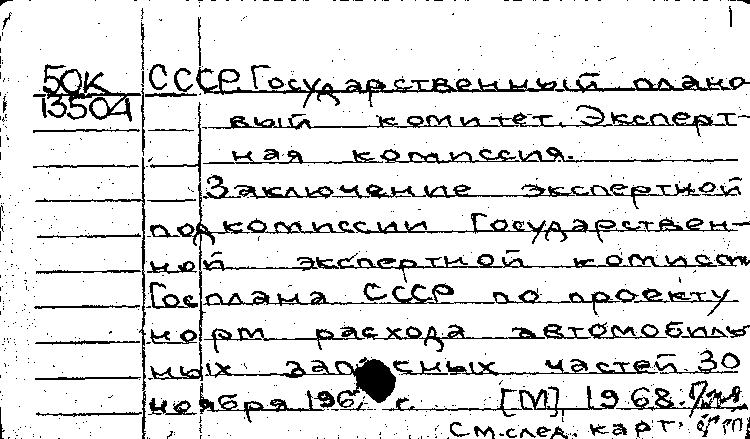 1
50К СССР. Государственный плано
13504 вый комитет. Эксперт-
ная комиссия.
Заключение экспертной
подкомиссии Государствен-
ной экспертной комисси
Госплана СССР по проекту
норм расхода автомобиль
ных запасных частей 30
ноября г. [М], 1968.
См. след. карт.